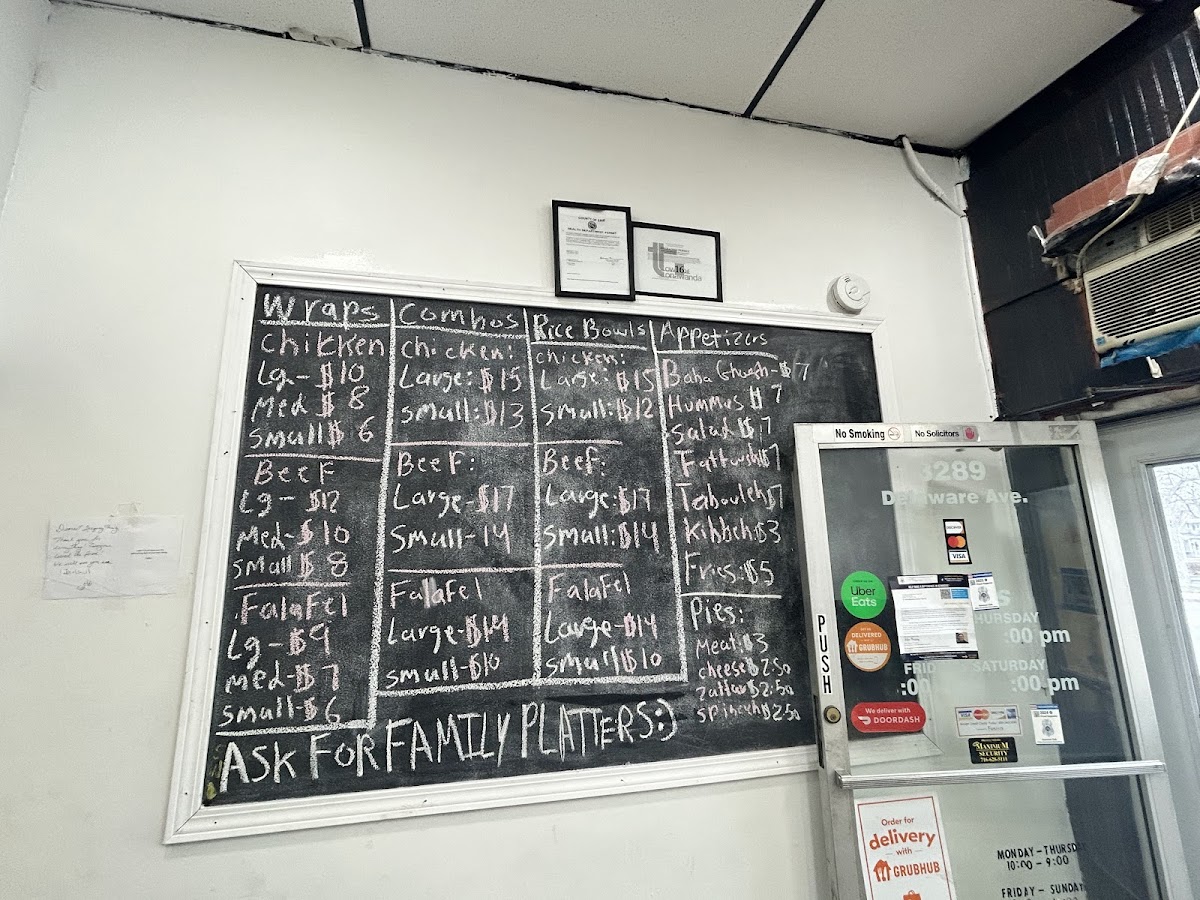 COUNTY OF ERIE
16
Tonawanda
Wraps
Chikken
Lg-$10
Med $8
small $6
BeeF
Lg- $12
Med-$10
small $8
Falafel
Lg-$9
med-$7
small-$6
Combos
chicken:
Large:$15
small:$13
BeeF:
Large-$17
Small-14
Falafel
Large-$14
small-$10
Rice Bowls
chicken:
Large:$15
small:$12
Beef:
Large:$17
small:$14
Falafel
Large-$14
small $10
Appetizers
Baba Ghush-$7
Hummus $7
Salad $7
Fattoush $7
Tabouleh $7
Kibbeh $3
Fries:$5
Pies:
Meat:$3
cheese $2.50
zattar $2.50
spinach $2.50
ASK FOR FAMILY PLATTERS:)
No Smoking
No Solicitors
3289
Delaware Ave.
VISA
Uber
Eats
DELIVERED
GRUBHUB
PUSH
THURSDAY
:00 pm
SATURDAY
:00 pm
We deliver with
DOORDASH
VISA
MAXIMUM
SECURITY
Order for
delivery
with
GRUBHUB
MONDAY-THURSDAY
10:00 - 9:00
FRIDAY- SUNDAY